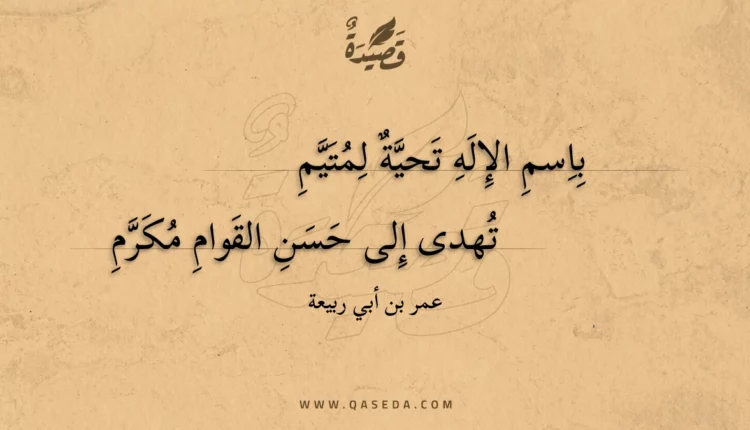 قَصِيدَةٌ
بِاِسمِ الإِلَهِ تَحيَّةٌ لِمُتَيَّمِ
تُهدى إِلى حَسَنِ القَوامِ مُكَرَّمِ
عمر بن أبي ربيعة
WWW.QASEDA.COM